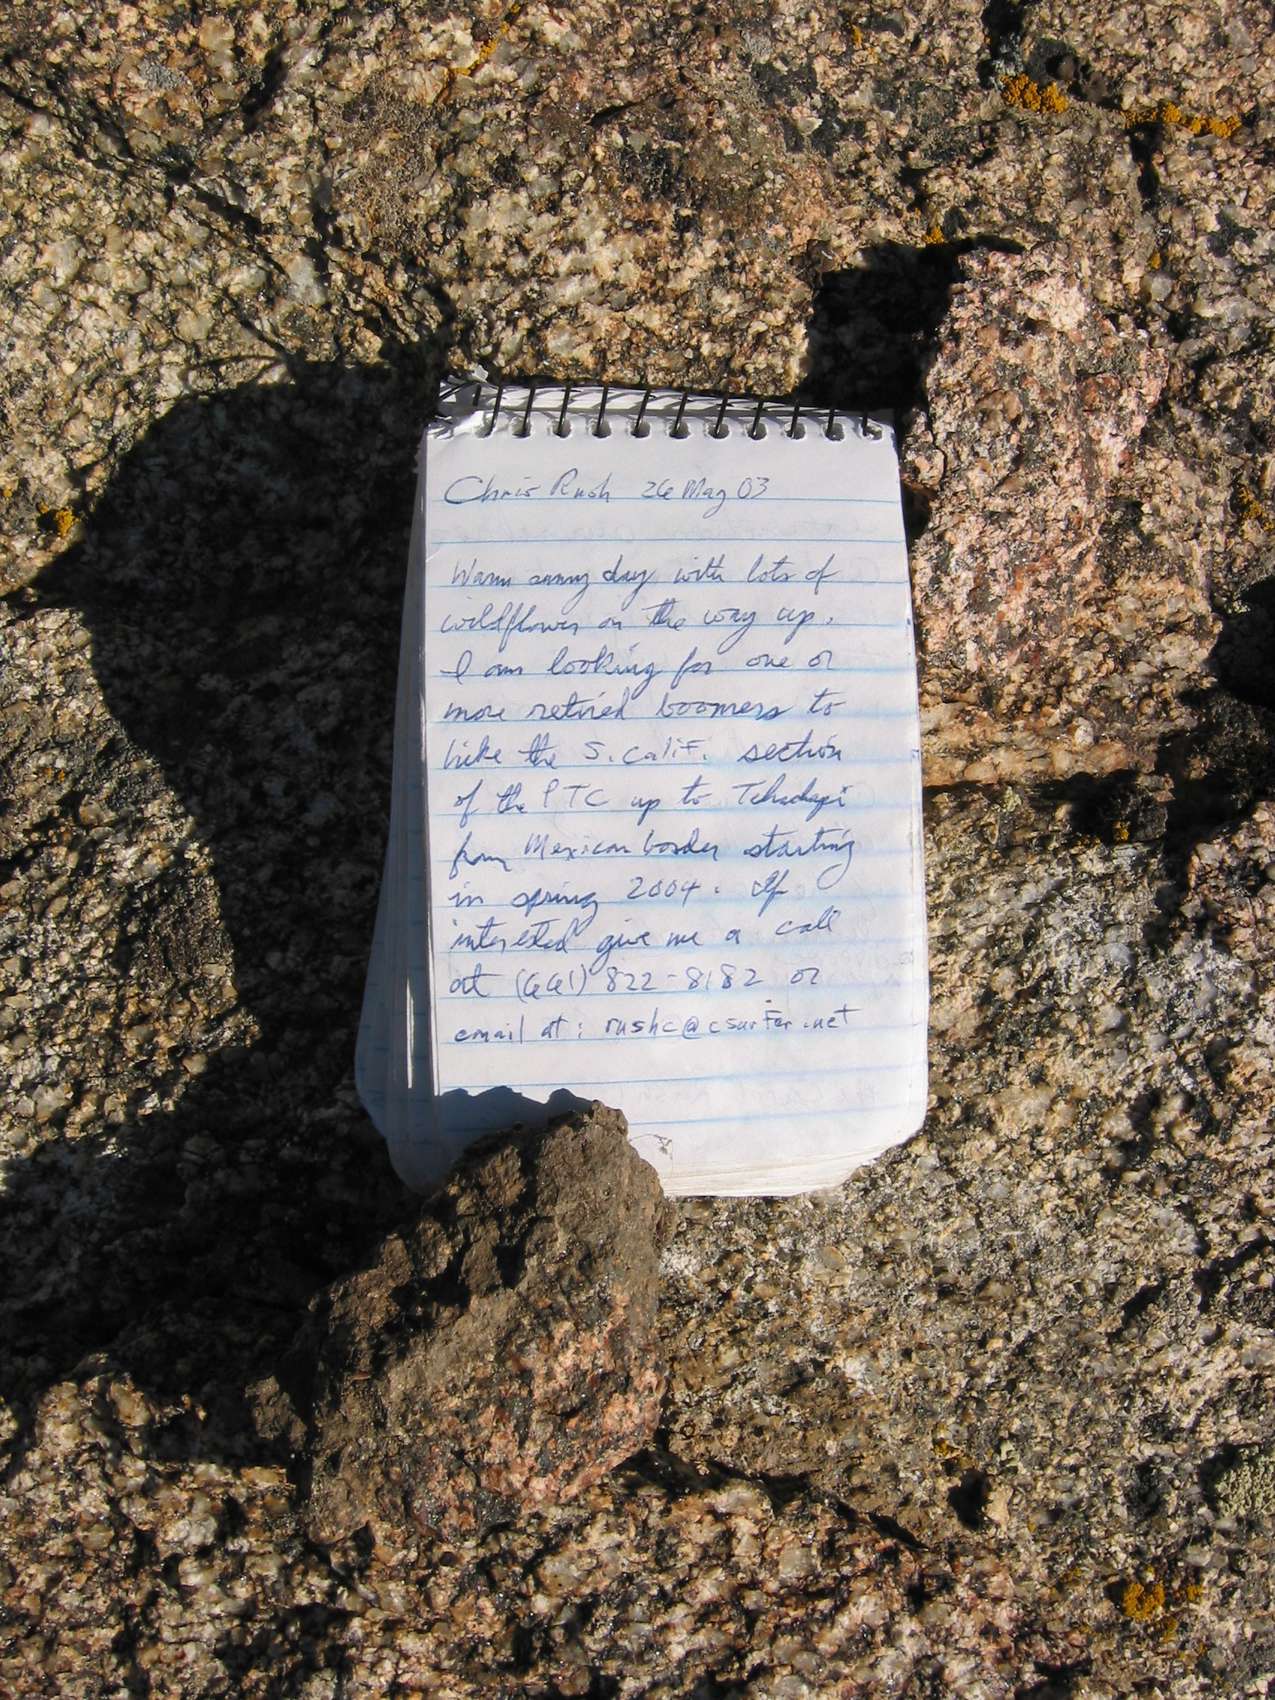 Chris Rush 26 May 03
Warm sunny day with lots of
wildflowers on the way up.
I am looking for one or
more retired boomers to
hike the S. Calif. section
of the PTC up to Tehachapi
from Mexican border starting
in spring 2004. If
interested give me a call
at (661) 822-8182 or
email at: rushc@csurfer.net